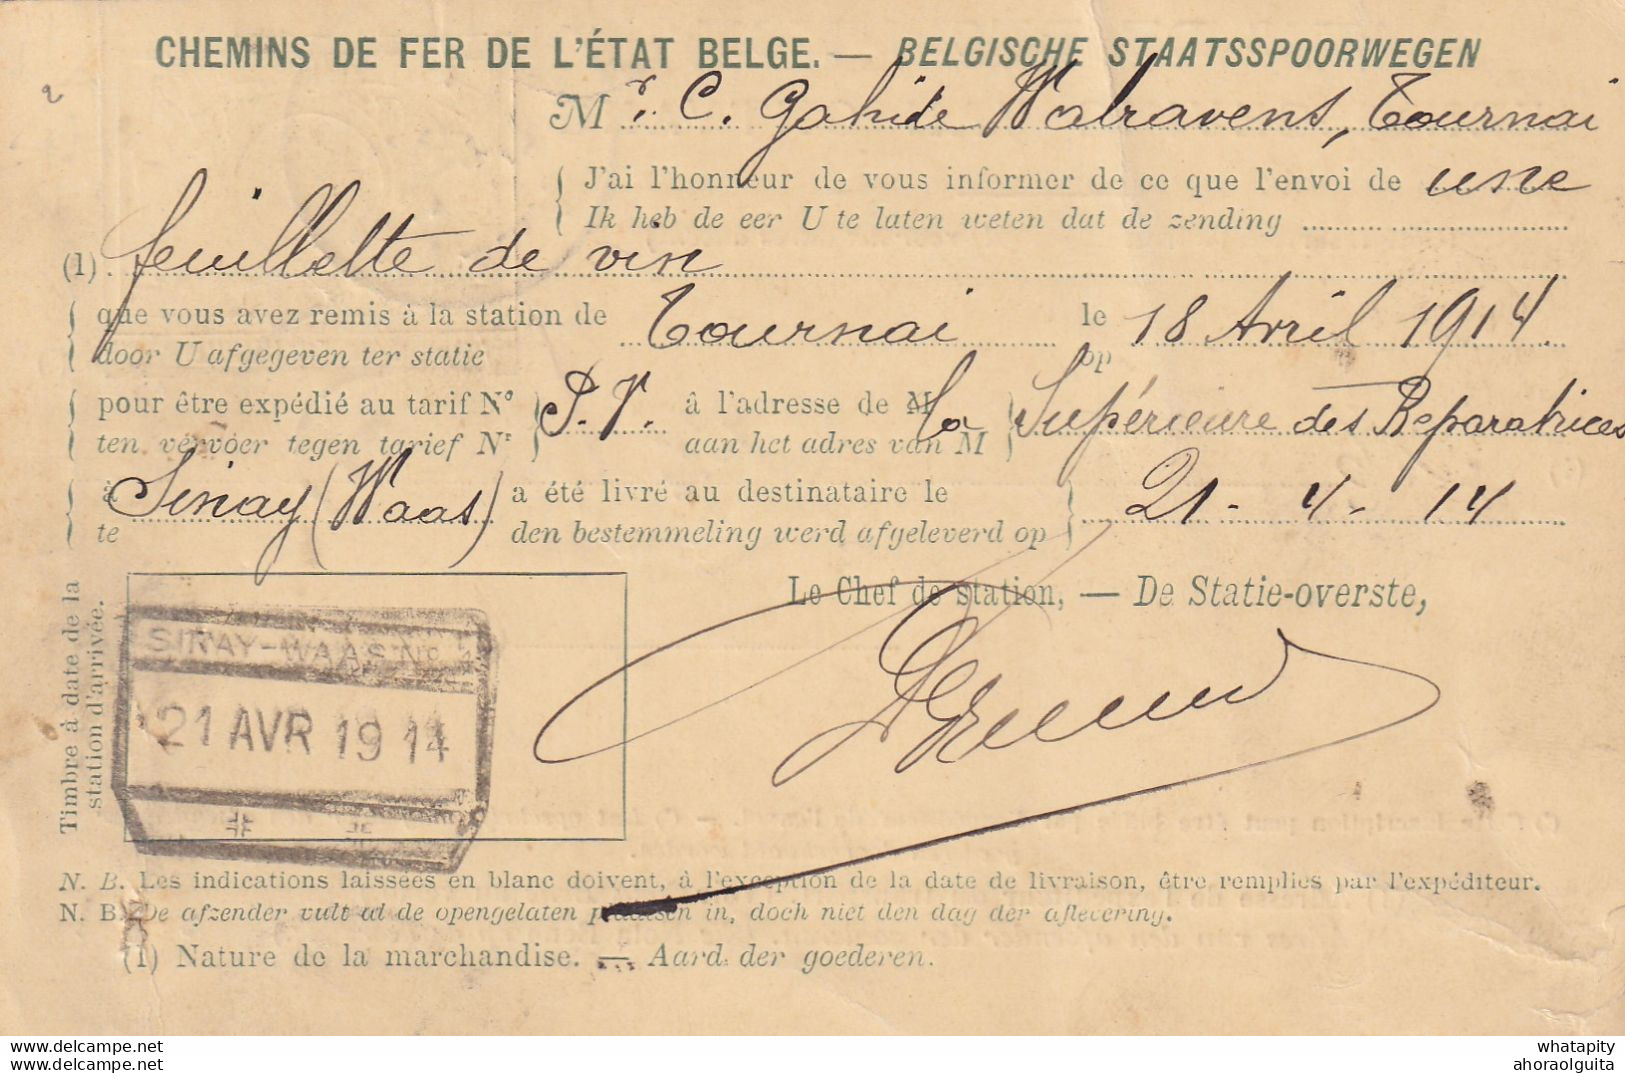 CHEMINS DE FER DE L'ÉTAT BELGE. — BELGISCHE STAATSSPOORWEGEN
Mr. C. Gahide Walravens, Tournai
J'ai l'honneur de vous informer de ce que l'envoi de une
Ik heb de eer U te laten weten dat de zending
(1) feuillette de vin
que vous avez remis à la station de Tournai le 18 Avril 1914.
door U afgegeven ter statie op
pour être expédié au tarif No P.V. à l'adresse de M la Supérieure des Réparatrices
ten vervoer tegen tarief Nr aan het adres van M
à Sinay (Waas) a été livré au destinataire le 21-4-14
te den bestemmeling werd afgeleverd op
Le Chef de station, — De Statie-overste,
Timbre à date de la
station d'arrivée.
SINAY-WAAS No
21 AVR 1914
N. B. Les indications laissées en blanc doivent, à l'exception de la date de livraison, être remplies par l'expéditeur.
N. B. De afzender vult al de opengelaten plaatsen in, doch niet den dag der aflevering.
(1) Nature de la marchandise. — Aard der goederen.
whatapity
delcampe.net
whatapity
ahoraolguita